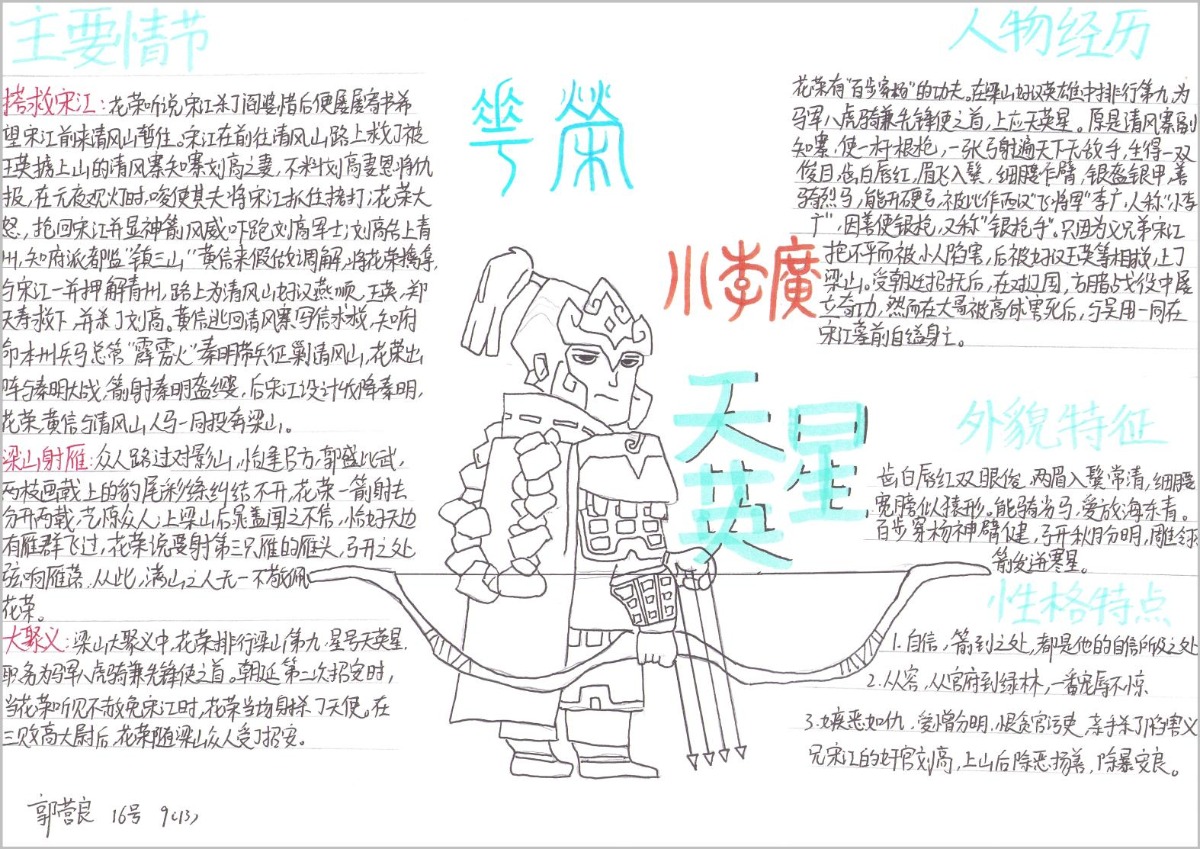 主要情节
搭救宋江:花荣听说宋江杀了阎婆惜后便屡屡寄书希
望宋江前来清风山暂住。宋江在前往清风山路上救了被
王英掳上山的清风寨知寨刘高之妻,不料刘高妻恩将仇
报,在元夜观灯时,唆使其夫将宋江抓住拷打;花荣大
怒,抢回宋江并显神箭风威吓跑刘高军士;刘高告上青
州,知府派都监"镇三山"黄信来假做调解,将花荣擒拿,
与宋江一并押解青州,路上为清风山好汉燕顺、王英、郑
天寿救下,并杀了刘高。黄信逃回清风寨写信求救,知府
命本州兵马总管"霹雳火"秦明带兵征剿清风山,花荣出
阵与秦明大战,箭射秦明盔缨,后宋江设计伐降秦明,
花荣、黄信与清风山人马一同投奔梁山。
梁山射雁:众人路过对影山,恰逢吕方,郭盛比武,
两枝画戟上的豹尾彩绦纠结不开,花荣一箭射去
分开两戟,艺惊众人;上梁山后晁盖闻之不信,恰好天边
有雁群飞过,花荣说要射第三只雁的雁头,弓开之处
弦响雁落。从此,满山之人无一不敬佩
花荣。
大聚义:梁山大聚义中,花荣排行梁山第九,星号天英星,
职务为马军八虎骑兼先锋使之首。朝廷第二次招安时,
当花荣听见不赦免宋江时,花荣当场射杀了天使。在
三败高太尉后,花荣随梁山众人受了招安。
郭营良 16号 9(13)
华荣
小李廣
天英星
人物经历
花荣有"百步穿杨"的功夫。在梁山好汉英雄中排行第九,为
马军八虎骑兼先锋使之首,上应天英星。原是清风寨副
知寨,使一杆银枪,一张弓射遍天下无敌手,生得一双
俊目,齿白唇红,眉飞入鬓,细腰乍臂,银盔银甲,善
骑烈马,能开硬弓,被比作西汉"飞将军"李广,人称"小李
广",因善使银枪,又称"银枪手"。只因为义兄弟宋江
抱不平而被小人陷害,后被好汉王英等相救,上了
梁山。受朝廷招抚后,在对辽国,方腊战役中屡
立奇功,然而在大哥被高俅害死后,与吴用一同在
宋江墓前自缢身亡。
外貌特征
齿白唇红双眼俊,两眉入鬓常清,细腰
宽膀似猿形。能骑劣马,爱放海东青。
百步穿杨神臂健,弓开秋月分明,雕翎
箭发迸寒星。
性格特点
1.自信,箭到之处,都是他的自信所及之处
2.从容,从官府到绿林,一番宠辱不惊
3.嫉恶如仇,爱憎分明,恨贪官污吏,亲手杀了陷害义
兄宋江的奸官刘高,上山后除恶扬善,除暴安良。